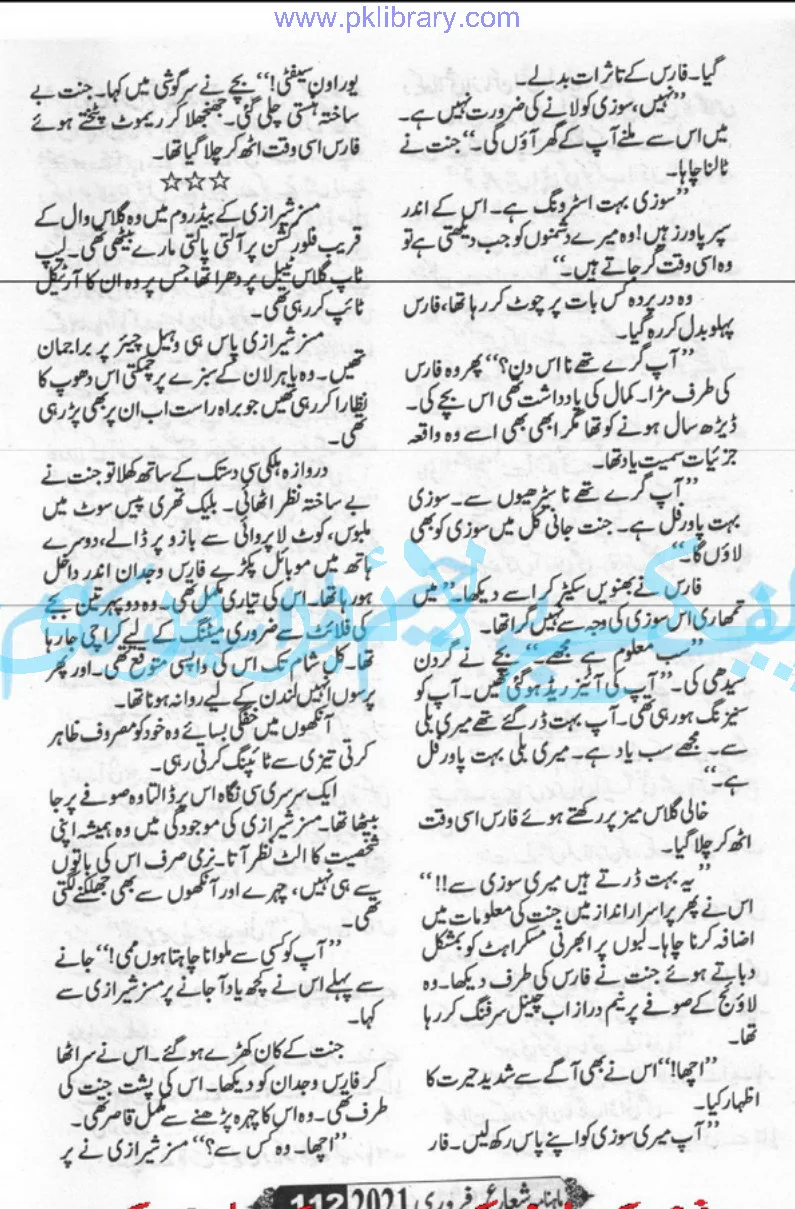 www.pklibrary.com
گیا۔ فارس کے تاثرات بدلے۔
’’نہیں، سوزی کو لانے کی ضرورت نہیں ہے۔
میں اس سے ملنے آپ کے گھر آؤں گی۔‘‘ جنت نے
ٹالنا چاہا۔
’’سوزی بہت اسٹرونگ ہے۔ اس کے اندر
سپر پاورز ہیں! وہ میرے دشمنوں کو جب دیکھتی ہے تو
وہ اسی وقت گر جاتے ہیں۔‘‘
وہ در پردہ کس بات پر چوٹ کر رہا تھا، فارس
پہلو بدل کر رہ گیا۔
’’آپ گرے تھے نا اس دن؟‘‘ پھر وہ فارس
کی طرف مڑا۔ کمال کی یادداشت تھی اس بچے کی۔
ڈیڑھ سال ہونے کو تھا مگر ابھی بھی اسے وہ واقعہ
جزئیات سمیت یاد تھا۔
’’آپ گرے تھے نا سیڑھیوں سے۔ سوزی
بہت پاور فل ہے۔ جنت جانی کل میں سوزی کو بھی
لاؤں گا۔‘‘
فارس نے بھنویں سکیڑ کر اسے دیکھا۔ ’’میں
تمھاری اس سوزی کی وجہ سے نہیں گرا تھا۔
’’سب معلوم ہے مجھے۔‘‘ بچے نے گردن
سیدھی کی۔ ’’آپ کی آئیز ریڈ ہو گئی تھیں۔ آپ کو
سنیزنگ ہو رہی تھی۔ آپ بہت ڈر گئے تھے میری بلی
سے۔ مجھے سب یاد ہے۔ میری بلی بہت پاور فل
ہے۔‘‘
خالی گلاس میز پر رکھتے ہوئے فارس اسی وقت
اٹھ کر چلا گیا۔
’’یہ بہت ڈرتے ہیں میری سوزی سے!!‘‘
اس نے پھر پراسرار انداز میں جنت کی معلومات میں
اضافہ کرنا چاہا۔ لبوں پر ابھرتی مسکراہٹ کو بمشکل
دباتے ہوئے جنت نے فارس کی طرف دیکھا۔ وہ
لاؤنج کے صوفے پر نیم دراز اب چینل سرفنگ کر رہا
تھا۔
’’اچھا!‘‘ اس نے بھی آگے سے شدید حیرت کا
اظہار کیا۔
’’آپ میری سوزی کو اپنے پاس رکھ لیں۔ فار
یور اون سیفٹی!‘‘ بچے نے سرگوشی میں کہا۔ جنت بے
ساختہ ہنستی چلی گئی۔ جھنجھلا کر ریموٹ پٹختے ہوئے
فارس اسی وقت اٹھ کر چلا گیا تھا۔
☆☆☆
مسز شیرازی کے بیڈ روم میں وہ گلاس وال کے
قریب فلور کشن پر آلتی پالتی مارے بیٹھی تھی۔ لیپ
ٹاپ گلاس ٹیبل پر دھرا تھا جس پر وہ ان کا آرٹیکل
ٹائپ کر رہی تھی۔
مسز شیرازی پاس ہی وہیل چیئر پر براجمان
تھیں۔ وہ باہر لان کے سبزے پر چمکتی اس دھوپ کا
نظارا کر رہی تھیں جو براہ راست اب ان پر بھی پڑ رہی
تھی۔
دروازہ ہلکی سی دستک کے ساتھ کھلا تو جنت نے
بے ساختہ نظر اٹھائی۔ بلیک تھری پیس سوٹ میں
ملبوس، کوٹ لاپروائی سے بازو پر ڈالے، دوسرے
ہاتھ میں موبائل پکڑے فارس وجدان اندر داخل
ہو رہا تھا۔ اس کی تیاری مکمل تھی۔ وہ دوپہر تین بجے
کی فلائٹ سے ضروری میٹنگ کے لیے کراچی جا رہا
تھا۔ کل شام تک اس کی واپسی متوقع تھی۔ اور پھر
پرسوں انہیں لندن کے لیے روانہ ہونا تھا۔
آنکھوں میں خفگی بسائے وہ خود کو مصروف ظاہر
کرتی تیزی سے ٹائپنگ کرتی رہی۔
ایک سرسری سی نگاہ اس پر ڈالتا وہ صوفے پر جا
بیٹھا تھا۔ مسز شیرازی کی موجودگی میں وہ ہمیشہ اپنی
شخصیت کا الٹ نظر آتا۔ نرمی صرف اس کی باتوں
سے ہی نہیں، چہرے اور آنکھوں سے بھی جھلکنے لگتی
تھی۔
’’آپ کو کسی سے ملوانا چاہتا ہوں ممی!‘‘ جانے
سے پہلے اس نے کچھ یاد آ جانے پر مسز شیرازی سے
کہا۔
جنت کے کان کھڑے ہو گئے۔ اس نے سر اٹھا
کر فارس وجدان کو دیکھا۔ اس کی پشت جنت کی
طرف تھی۔ وہ اس کا چہرہ پڑھنے سے مکمل قاصر تھی۔
’’اچھا۔ وہ کس سے؟‘‘ مسز شیرازی نے پر
ماہنامہ شعاع فروری 2021 112